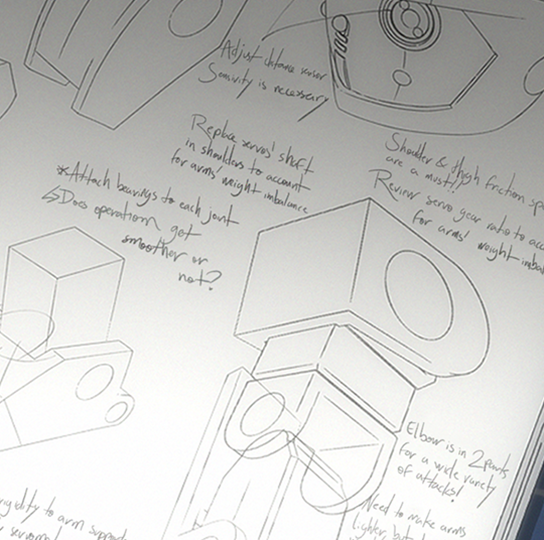 Adjust distance sensor
Sensivity is necessary
Replace servos' shaft
in shoulders to account
for arms' weight imbalance
Shoulder & thigh friction
are a must!!
Review servo gear ratio to
for arms' weight
*Attach bearings to each joint
↳Does operation get
smoother or
not?
Elbow is in 2 parts
for a wide variety
of attacks!
Need to make arms
lighter, but
to arm